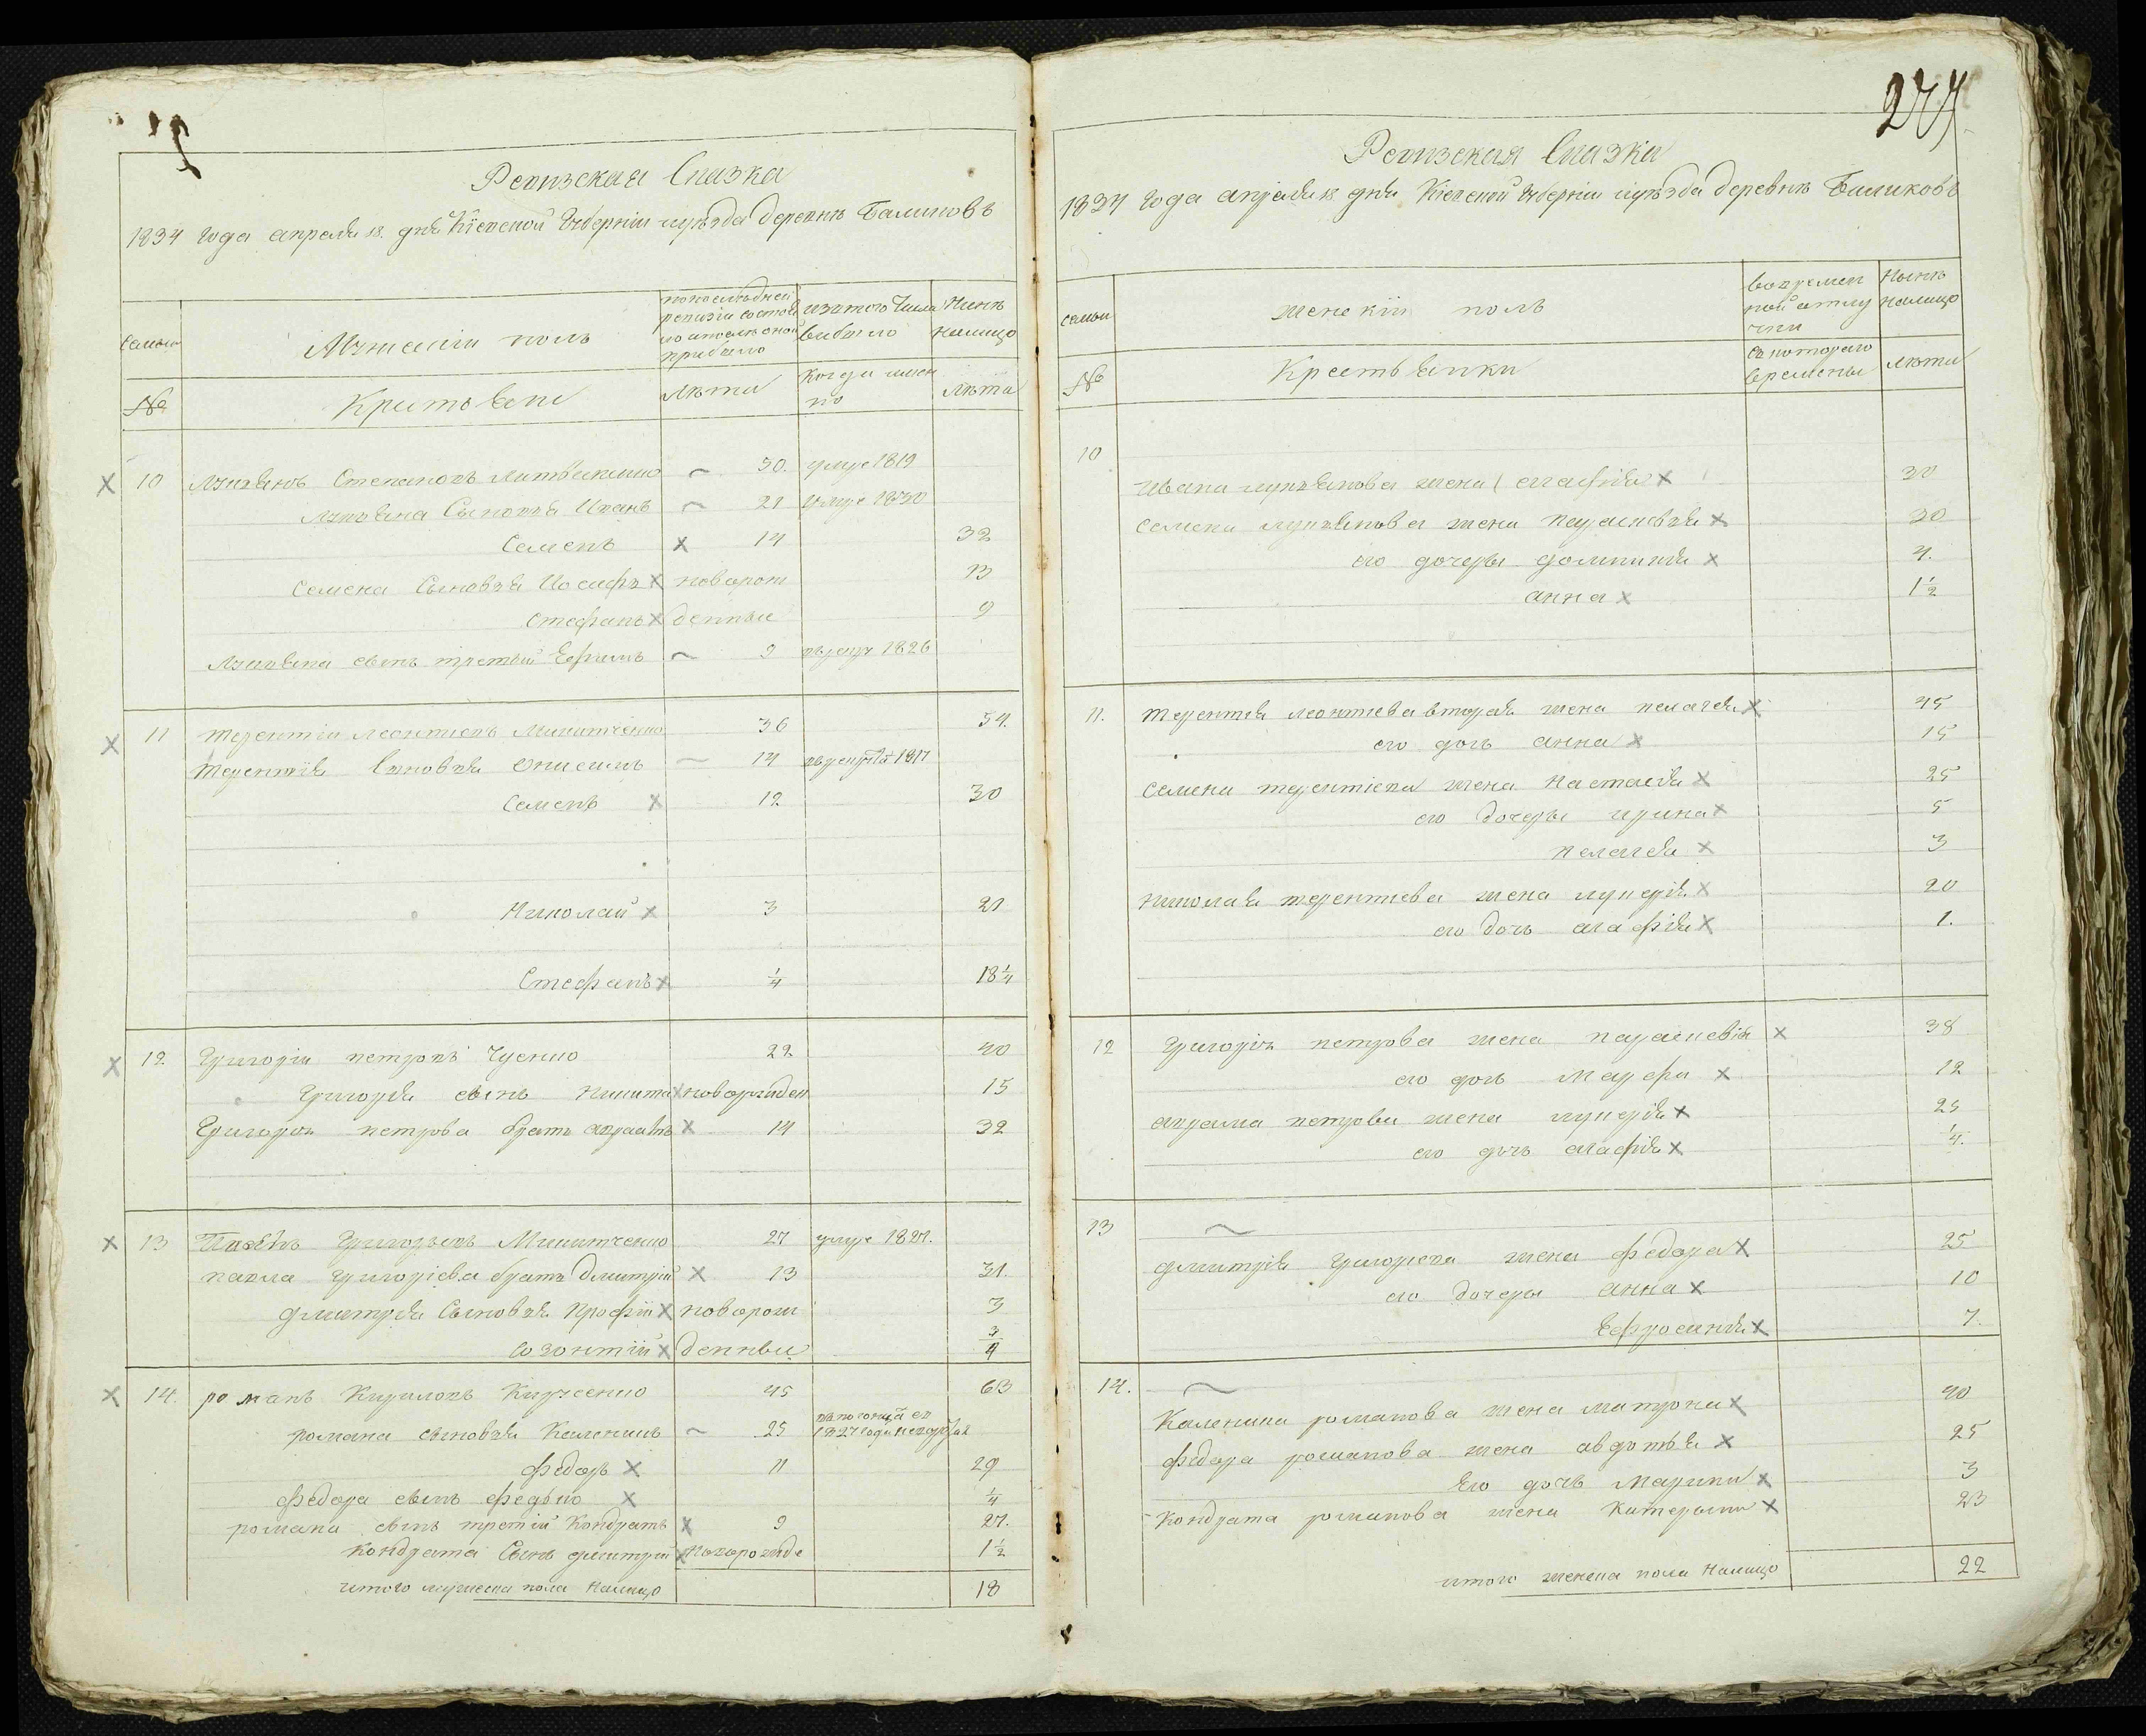 Ревизская Сказка
1834 года апреля 18 дня Кіевской Губерніи уѣзда деревнѣ Баликовъ
Семьи
Мужескій полъ
по последней ревизіи состояло и после оной прибыло
изъ того числа выбыло
Нынѣ налицо
№
Крестьяне
Лѣта
Когда именно
Лѣта
10 Лукьянъ Степановъ Литвиненко 50. умре 1819
Лукьяна Сыновья Иванъ 21 умре 1830
Семенъ 14 32
Семена Сыновья Иосифъ новорож 13
Стефанъ денные 9
Лукьяна сынъ третый Ефимъ 9 1826
11 Терентій Леонтиевъ Микитченко 36 54.
Терентія Сыновья Онисимъ 14 1817
Семенъ 12 30
Николай 3 21
Стефанъ 1/4 18 1/4
12 Григорій петровъ 22 40
Григорія сынъ Никита новорожден 15
Григорія петрова братъ авраамъ 14 32
13 Павелъ Григорьевъ Микитченко 27 умре 1827.
павла Григоріева братъ Дмитрій 13 31.
Дмитрія Сыновья Профій новорож 3
Созонтий денные 3/4
14. романъ Кириловъ 45 63
романа сыновья Каленикъ 25 1827 года
Федоръ 11 29
Федора сынъ 1/4
романа сынъ третій Кондратъ 9 27.
Кондрата Сынъ дмитрий новорожде 1 1/2
итого мужеска пола налицо 18
274
Ревизская Сказка
1834 года апреля 18 дня Кіевской Губерніи уѣзда деревнѣ Балыковъ
семьи
женскій полъ
во времен ной отлу чки
Нынѣ налицо
№
Крестьянки
съ котораго времены
лѣта
10
Ивана лукьянова жена агафия 30
Семена лукьянова жена параскевия 30
его дочеры домникия 4.
анна 1 1/2
11. терентия леонтиева вторая жена пелагея 45
его дочь анна 15
Семена терентіева жена настасия 25
его дочеры ирина 5
пелагея 3
николая терентиева жена лукерия 20
его дочь агафия 1.
12 Григорія петрова жена параскевія 38
его дочь марфа 12
авраама петрова жена лукерия 25
его дочь агафия 1/4.
13
дмитрия Григориева жена федора 25
его дочеры анна 10
Ефросиния 7.
14.
Каленика романова жена матрона 40
Федора романова жена авдотья 25
Его дочь Марина 3
Кондрата романова жена Катерина 23
итого женска пола налицо 22